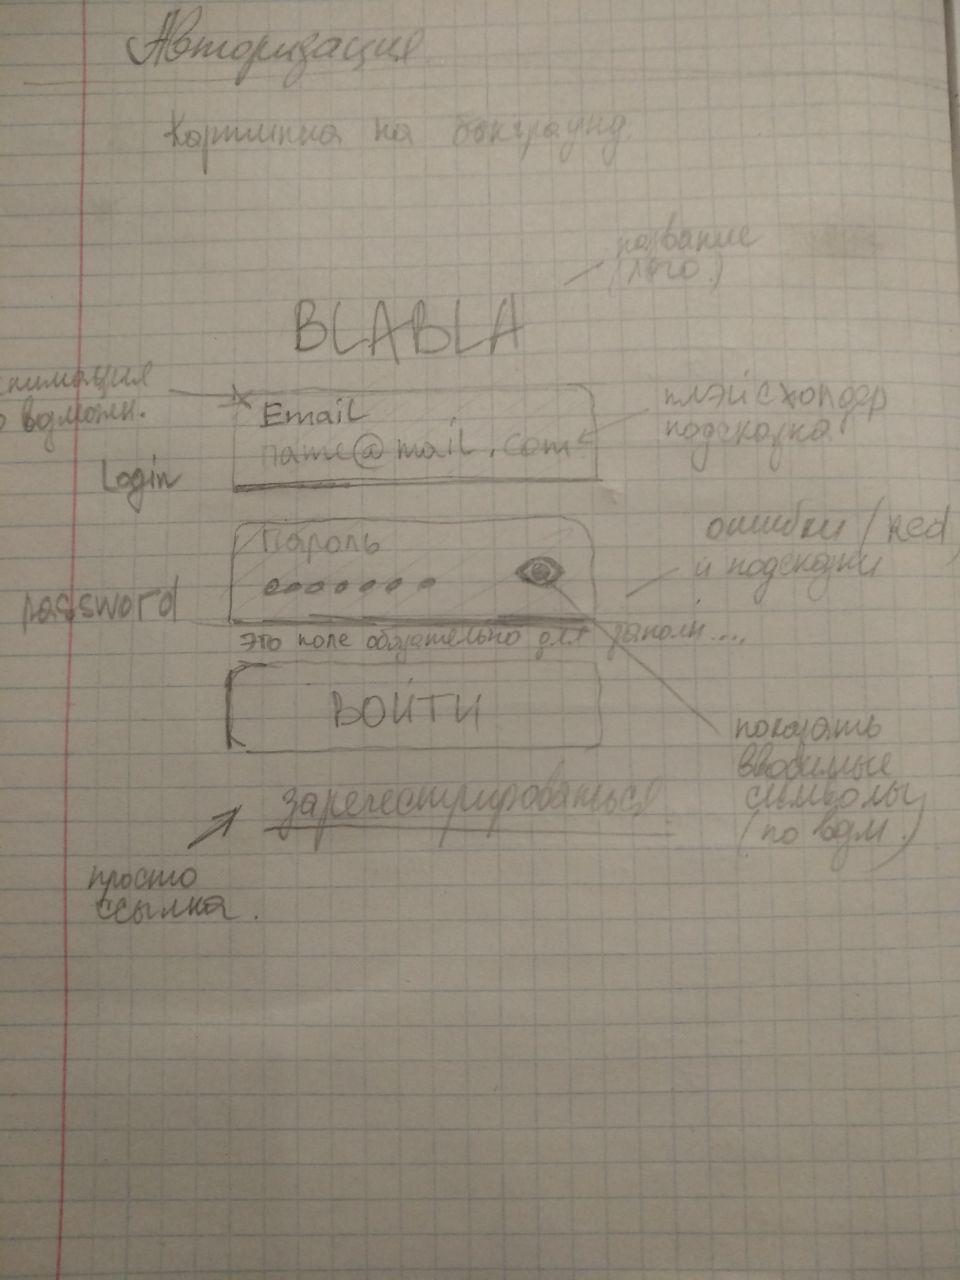 Авторизация
Картинка на бэкграунд
название
(лого.)
BLABLA
анимация
по возможн.
Email
плэйсхолдер
подсказка
name@mail.com
Login
ошибки / red
и подсказки
Пароль
password
это поле обязательно для заполн....
ВОЙТИ
показать
вводимые
символы
(по вдм.)
зарегестрироваться
просто
ссылка.